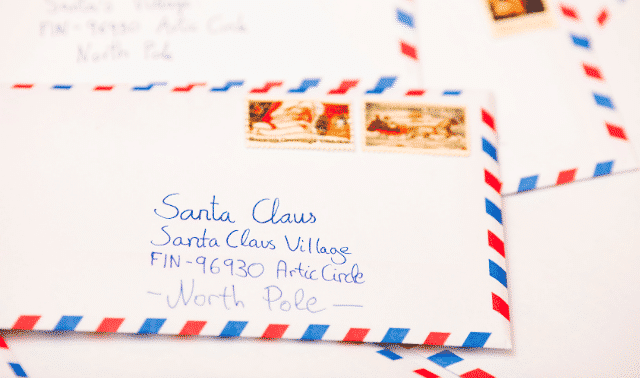 Santa's Village
FIN-96930 Artic Circle
North Pole
Santa Claus
Santa Claus Village
FIN-96930 Artic Circle
-North Pole-